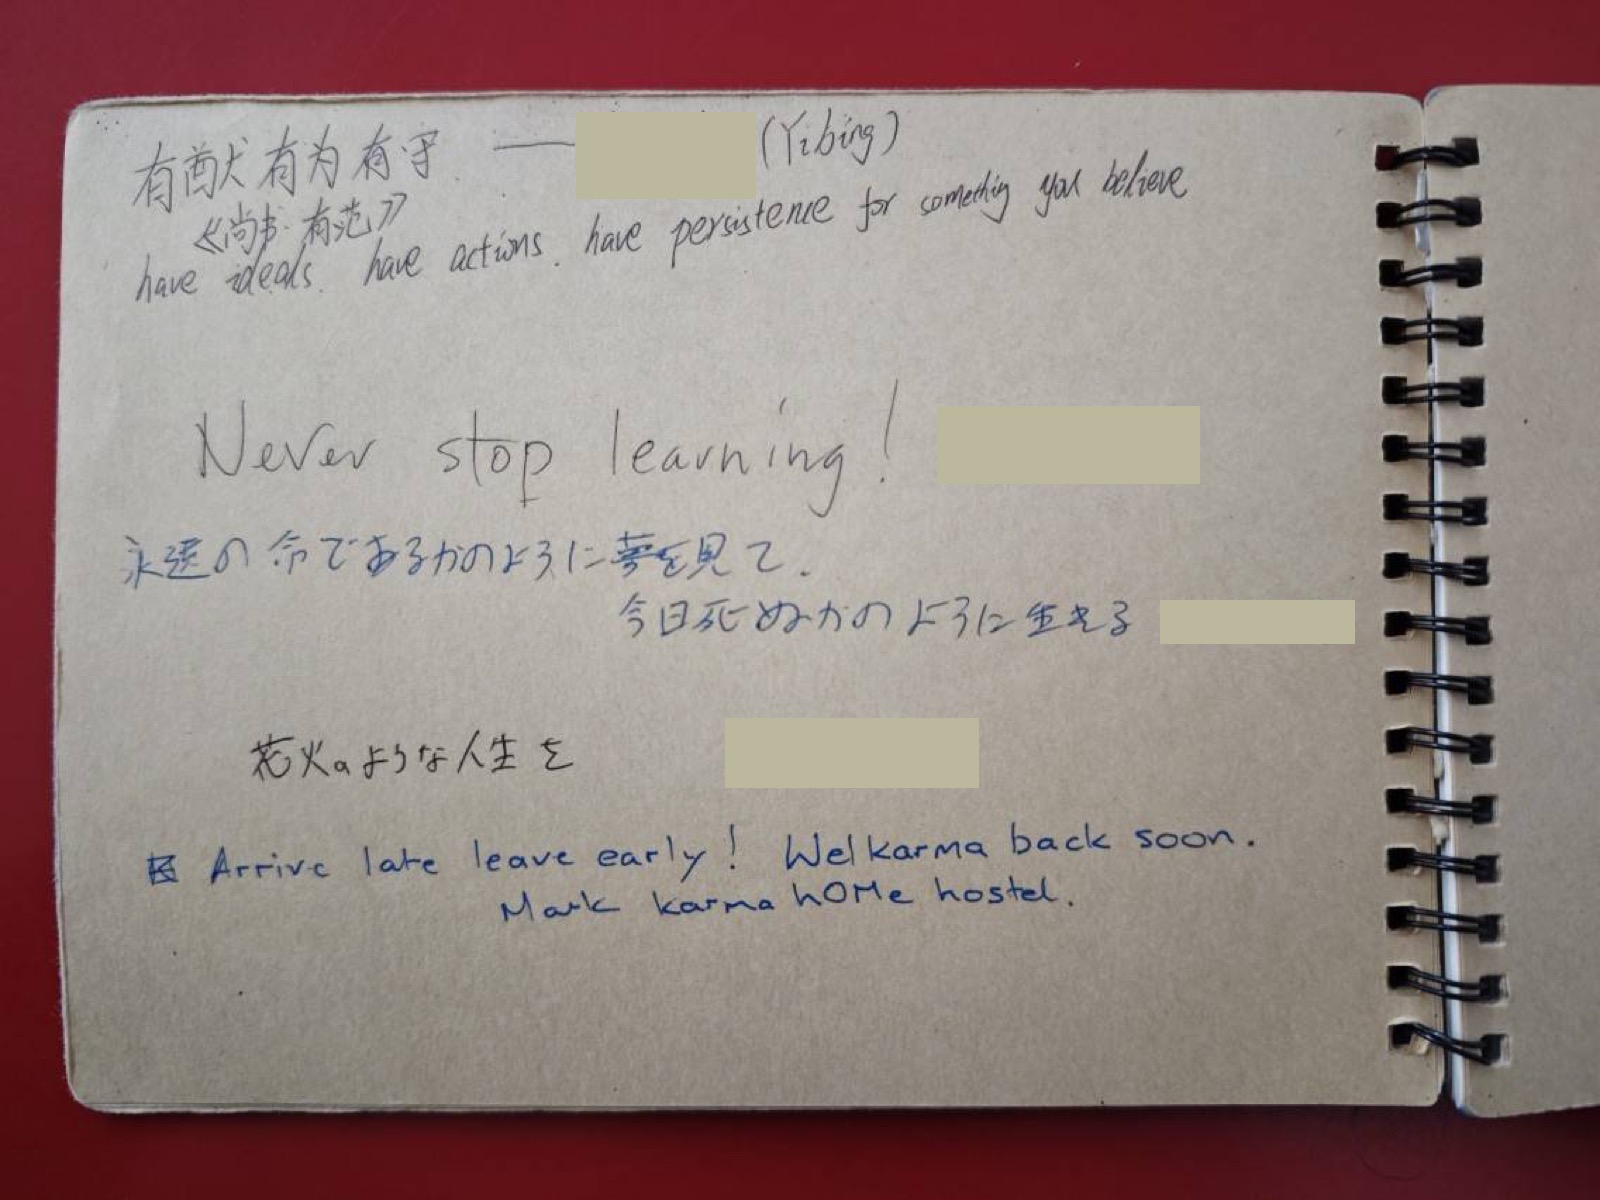 有猷有为有守 —— (Yibing)
《尚书·有范》
have ideals. have actions. have persistence for something you believe
Never stop learning!
永遠の命であるかのように夢を見て.
今日死ぬかのように生きる
花火のような人生を
Arrive late leave early! Welkarma back soon.
Mark karma hOMe hostel.